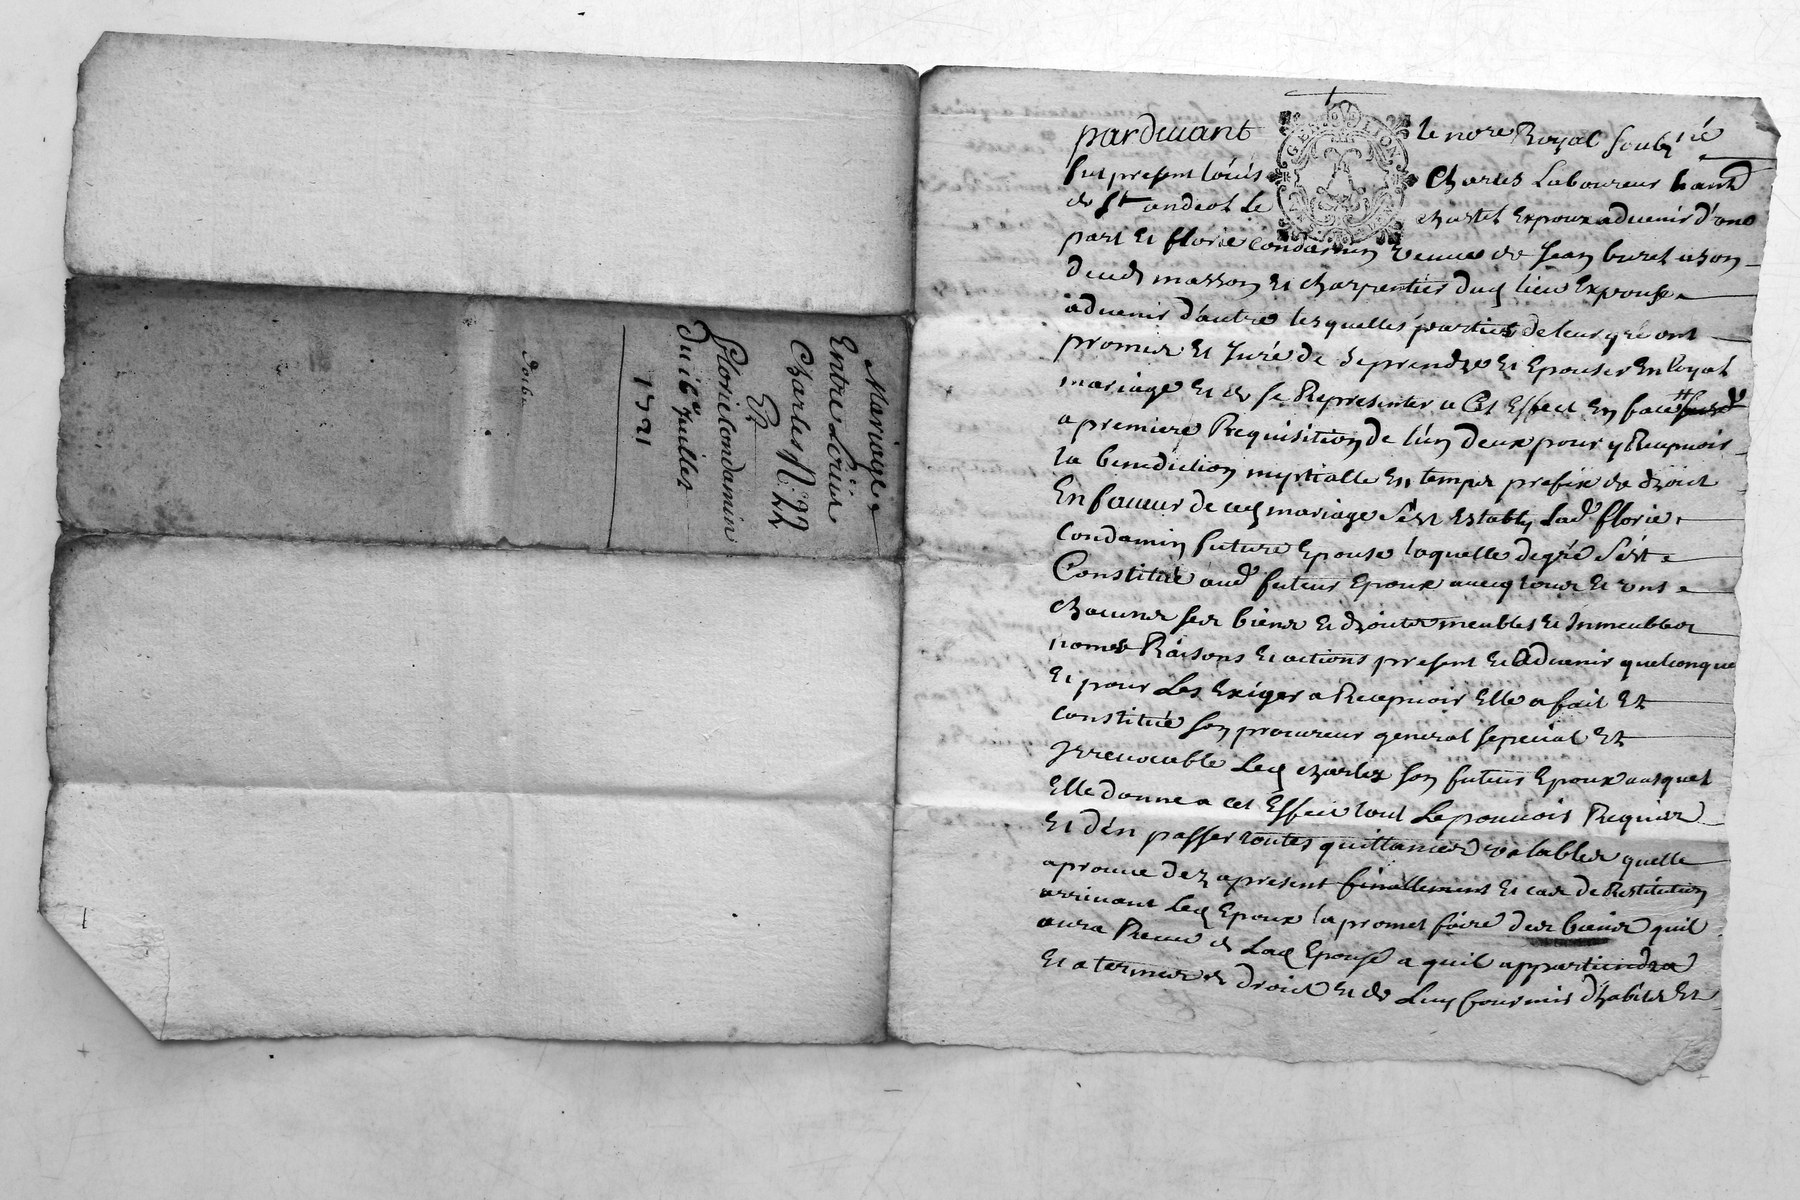 Mariage
Entre Loüis
Charles N: 22
Et
Florie Condamin
Du 16e Juillet
1721
parduant le nore Royal soubsné
fut present loüis Charles Laboureur habitt
de St andeol Le chastel Expoux aduenir d'une
part Et florie Condamin veuve de Jean buret uiuon
duud masson Et charpentier dud lieu Expouse
aduenir d'autre lesquelles parties de leur gré ont
promis Et Juré de se prendre Et Epouser En loyal
mariage Et de se Representer a Cet Effect En face
a premiere Requisition de l'un deux pour y Recepuoir
la benediction nuptialle En temps prefix de droit
En faueur de ced mariage s'est Estably lad florie
Condamin future Epouse laquelle de gré s'est
Constitué aud futur Epoux auecq tous Et vns
chacuns ses biens Et droits meubles Et Inmeubles
noms Raisons Et actions present Et Aduenir quelconque
Et pour Les Exiger a Recepuoir Elle a fait Et
constitué son procureur general sepecial Et
Irreuocable Led charles son futur Epoux auquel
Elle donne a cet Effect tout Le pouuoir Requis
Et d'en passer toutes quittances valables quelle
aprouue dez apresent finallement Et cas de Restitution
arriuant Led Epoux la promet faire des biens quil
aura Receu de Lad Epouse a quil appartiendra
Et a termes de droit Et de Luy fournir d'habits Et